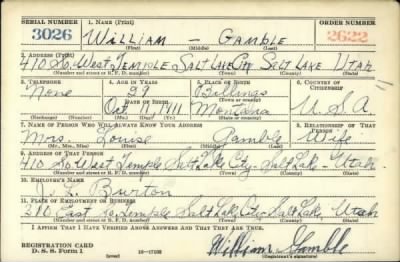 SERIAL NUMBER 1. NAME (Print) ORDER NUMBER
3026 William — Gamble 2622
(First) (Middle) (Last)
2. ADDRESS (Print)
410 So. West Temple Salt Lake City Salt Lake Utah
(Number and street or R. F. D. number) (Town) (County) (State)
3. TELEPHONE 4. AGE IN YEARS 5. PLACE OF BIRTH 6. COUNTRY OF CITIZENSHIP
None 29 Billings
DATE OF BIRTH (Town or county)
Oct 11 1911 Montana U.S.A.
(Exchange) (Number) (Mo.) (Day) (Yr.) (State or country)
7. NAME OF PERSON WHO WILL ALWAYS KNOW YOUR ADDRESS 8. RELATIONSHIP OF THAT PERSON
Mrs. Louise Gamble Wife
(Mr., Mrs., Miss) (First) (Middle) (Last)
9. ADDRESS OF THAT PERSON
410 So West Temple Salt Lake City - Salt Lake - Utah
(Number and street or R. F. D. number) (Town) (County) (State)
10. EMPLOYER'S NAME
Burton
11. PLACE OF EMPLOYMENT OR BUSINESS
East So. Temple Salt Lake City Salt Lake, Utah
(Number and street or R. F. D. number) (Town) (County) (State)
I AFFIRM THAT I HAVE VERIFIED ABOVE ANSWERS AND THAT THEY ARE TRUE.
REGISTRATION CARD
D. S. S. Form 1 (over) William Gamble
(Registrant's signature)